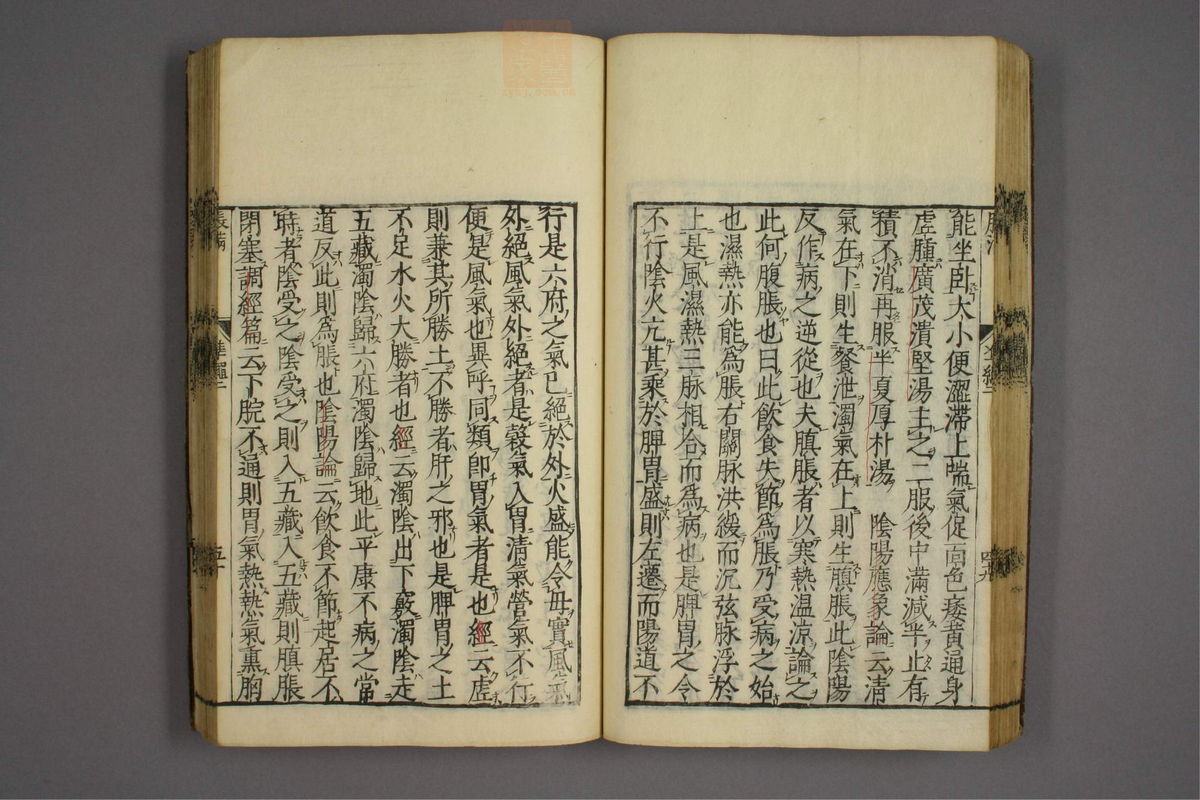 能坐卧大小便澀滯上喘氣促面色痿黃通身
虛腫廣茂潰堅湯主之二服後中滿減半止有
積不消再服半夏厚朴湯 陰陽應象論云清
氣在下則生飱泄濁氣在上則生䐜脹此陰陽
反作病之逆從也夫䐜脹者以寒熱温凉論之
此何腹脹也曰此飲食失節爲脹乃受病之始
也濕熱亦能爲脹右關脉洪緩而沉弦脉浮於
上是風濕熱三脉相合而爲病也是脾胃之令
不行陰火亢甚乘於脾胃盛則左遷而陽道不
行是六府之氣已絕於外火盛能令母實風氣
外絕風氣外絕者是穀氣入胃清氣營氣不行
便是風氣也異呼同類卽胃氣者是也經云虛
則兼其所勝土不勝者肝之邪也是脾胃之土
不足水火大勝者也經云濁陰出下竅濁陰走
五藏濁陰歸六府濁陰歸地此平康不病之常
道反此則爲脹也陰陽論云飲食不節起居不
時者陰受之陰受之則入五藏入五藏則䐜脹
閉塞調經篇云下脘不通則胃氣熱熱氣熏胸